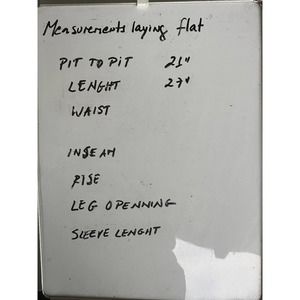 Measurements laying flat
PIT TO PIT 21"
LENGHT 27"
WAIST
INSEAM
RISE
LEG OPENNING
SLEEVE LENGHT